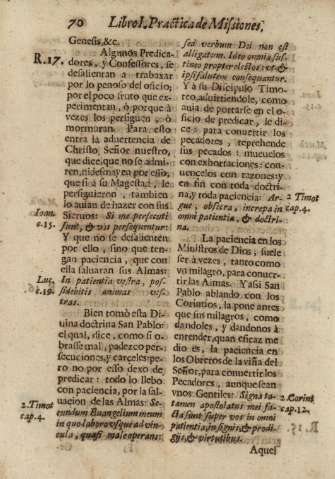 70 Libro I. Practica de Missiones,
Genesis, &c.
Algunos Predica-
R.17. dores, y Confessores, se
desalientan a trabaxar
por lo penoso del oficio;
por el poco fruto que ex-
perimentan, ò porque à
vezes los persiguen, ò
mormuran. Para esto
entra la aduertencia de
Christo Señor nuestro,
que dize, que no se admi-
ren, ni desmayen por esso,
que si à su Magestad, le
persiguieron, tambien
lo auian de hazer con sus
Ioan. Sieruos: Si me persecuti
c.15. sunt, & vos persequentur:
Y que no se desalienten
por ello, sino que ten-
gan paciencia, que con
ella saluaran sus Almas:
Luc. In patientia vestra, pos-
c.19. sidebitis animas ves-
tras.
Bien tomò esta Di-
uina doctrina San Pablo:
el qual, dize, como si o-
brasse mal, padezco per-
secuciones, y carceles: pe-
ro no por esso dexo de
predicar: todo lo lleuo
con paciencia, por la sal-
uacion de las Almas: Se-
2. Timot cundum Euangelium meum
cap.4. in quo laboro vsque ad vin-
cula, quasi male operans:
sed verbum Dei non est
alligatum. Ideo omnia sus-
tineo propter electos: vt &
ipsi salutem consequantur.
Y à su Discipulo Timo-
teo, aduirtiendole, como
auia de portarse en el o-
ficio de predicar, le di-
ze: para conuertir los
pecadores, reprehende
sus pecados: mueuelos
con exhortaciones: con-
uencelos con razones: y
en fin con toda doctri-
na, y toda paciencia: Ar- 2. Timot
gue, obsecra, increpa in cap.4.
omni patientia, & doctri-
na.
La paciencia en los
Ministros de Dios, suele
ser à vezes, tanto como
vn milagro, para conuer-
tir las Almas. Y assi San
Pablo ablando con los
Corintios, la pone antes
que sus milagros, como
dandoles, y dandonos à
entender, quan eficaz me
dio es, la paciencia en
los Obreros de la viña del
Señor, para conuertir los
Pecadores, aunque sean
vnos Gentiles: Signa ta- 2. Corint
men apostolatus mei fa- cap.12.
cta sunt super vos in omni
patientia, in signis, & prodi-
gijs, & virtutibus.
Aquel